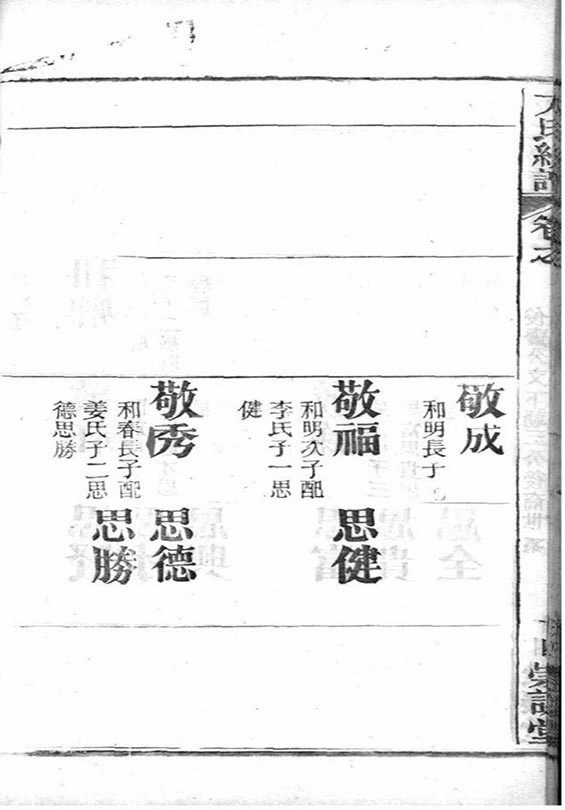 敬成
和明長子
敬福
和明次子配
李氏子一思
健
思健
敬秀
和春長子配
姜氏子二思
德思勝
思德
思勝